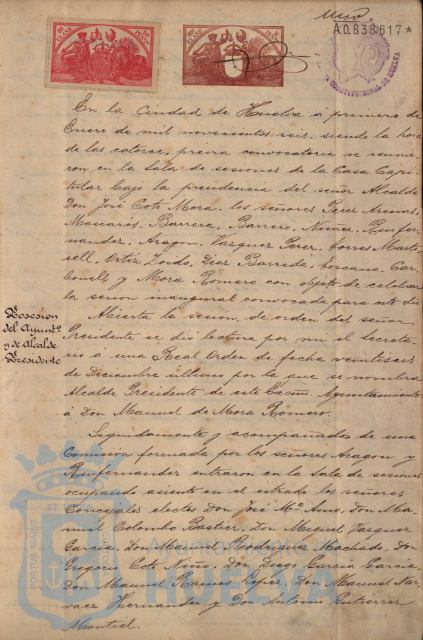 Uno
A0.838.617*
En la Ciudad de Huelva á primero de
Enero de mil novecientos seis, siendo la hora
de las catorce, previa convocatoria se reunie
ron en la Sala de sesiones de la Casa Capi
tular bajo la presidencia del señor Alcalde
Don José Coto Mora, los señores Perez
Barrera, Barrero, Nuñez,
Aragon, Vazquez Perez,
Ortiz Diaz Barreda, Toscano,
y Mora Romero con objeto de celebrar
la sesion inaugural convocada para este dia
Abierta la sesion, de orden del señor
Presidente se dió lectura por mi el Secreta
rio á una Real Orden de fecha veintiseis
de Diciembre último por la que se nombra
Alcalde Presidente de este Excmo. Ayuntamiento
á Don Manuel de Mora Romero.
Posesion
del Ayuntº
y de Alcalde
Presidente
Seguidamente y acompañados de una
Comisión formada por los señores Aragon y
entraron en la Sala de sesiones
ocupando asiento en el estrado los señores
Concejales electos Don José Mª Don Ma
nuel Colombo Don Miguel Vazquez
Garcia, Don Manuel Rodriguez Machado, Don
Gregorio Coto Don Diego Garcia Garcia,
Don Manuel Ramos Lopez, Don Manuel Nar
vaez Hernandez y Don Antonio Gutierrez
Montiel.
PORTUS MARIS ET
Ayuntamiento de
HUELVA